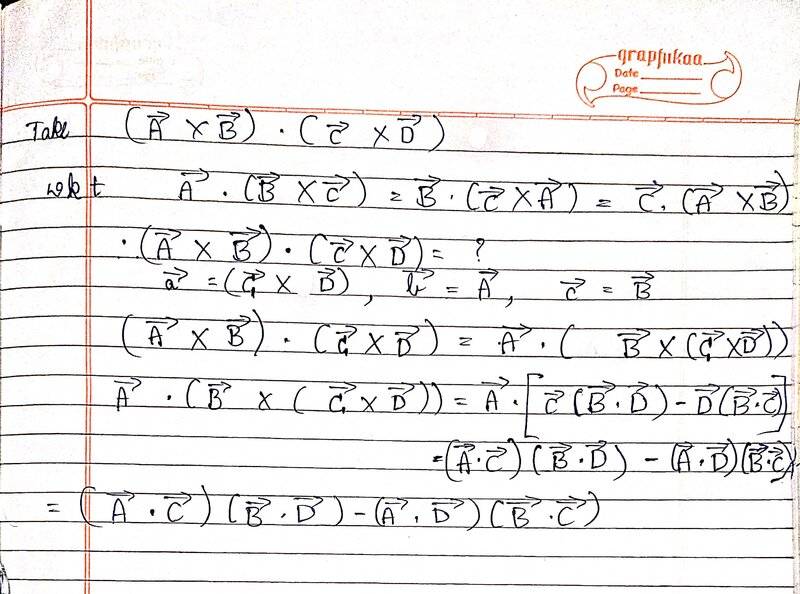 grapfukaa
Date
Page
Take (A⃗ × B⃗) · (C⃗ × D⃗)
wkt A⃗ · (B⃗ × C⃗) = B⃗ · (C⃗ × A⃗) = C⃗ · (A⃗ × B⃗)
· (A⃗ × B⃗) · (C⃗ × D⃗) = ?
a⃗ = (C⃗ × D⃗), b⃗ = A⃗, c⃗ = B⃗
(A⃗ × B⃗) · (C⃗ × D⃗) = A⃗ · ( B⃗ × (C⃗ × D⃗))
A⃗ · (B⃗ × (C⃗ × D⃗)) = A⃗ · [C⃗ (B⃗ · D⃗) - D⃗ (B⃗ · C⃗)]
= (A⃗ · C⃗) (B⃗ · D⃗) - (A⃗ · D⃗) (B⃗ · C⃗)
= (A⃗ · C⃗) (B⃗ · D⃗) - (A⃗ · D⃗) (B⃗ · C⃗)